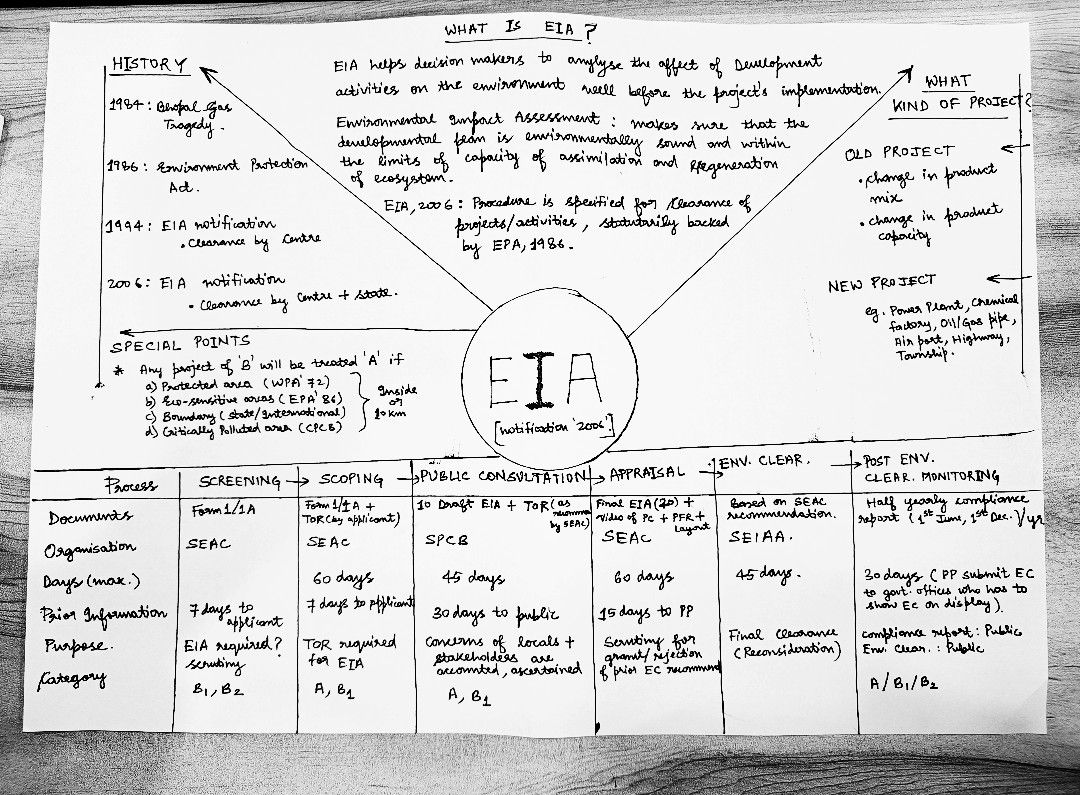 WHAT IS EIA?
EIA helps decision makers to anylyse the affect of Development
activities on the environment well before the project's implementation.
Environmental Impact Assessment : makes sure that the
developmental plan is environmentally sound and within
the limits of capacity of assimilation and Regeneration
of ecosystem.
EIA, 2006 : Procedure is specified for Clearance of
projects/activities, statutarily backed
by EPA, 1986.
HISTORY
1984 : Bhopal Gas
Tragedy.
1986 : Environment Protection
Act.
1994 : EIA notification
• Clearance by Centre
2006 : EIA notification
• Clearance by Centre + State.
WHAT
KIND OF PROJECT?
OLD PROJECT
• change in product
mix
• change in product
capacity
NEW PROJECT
eg. Power Plant, Chemical
factory, Oil/Gas pipe,
Air port, Highway,
Township.
SPECIAL POINTS
* Any project of 'B' will be treated 'A' if
a) Protected area (WPA' 72)
b) Eco-sensitive areas (EPA' 86)
c) Boundary (state/International)
d) Critically Polluted area (CPCB)
Inside
or
10 km
EIA
[notification '2006']
Process SCREENING → SCOPING → PUBLIC CONSULTATION → APPRAISAL → ENV. CLEAR. → POST ENV.
CLEAR. MONITORING
Documents
Form 1/1A
Form 1/1A +
TOR (by applicant)
10 Draft EIA + TOR (as
recomm
by SEAC)
Final EIA (20) +
Video of PC + PFR +
Layout
Based on SEAC
recommendation.
Half yearly compliance
report (1st June, 1st Dec.)/yr
Organisation
SEAC
SEAC
SPCB
SEAC
SEIAA.
Days (max.)
60 days
45 days
60 days
45 days.
30 days (PP submit EC
to govt. offices who has to
show EC on display)
Prior Information
7 days to
applicant
7 days to applicant
30 days to public
15 days to PP
Purpose.
EIA required?
scrutiny
TOR required
for EIA
Concerns of locals +
stakeholders are
accounted, ascertained
Scrutiny for
grant/rejection
of prior EC recommend
Final Clearance
(Reconsideration)
compliance report : Public
Env. Clear. : Public
Category
B1, B2
A, B1
A, B1
A/B1/B2